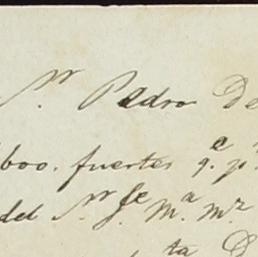 Sr. Pedro De
boo. fuertes q.e p.r
del Sr. Je M.a M.z
ta D